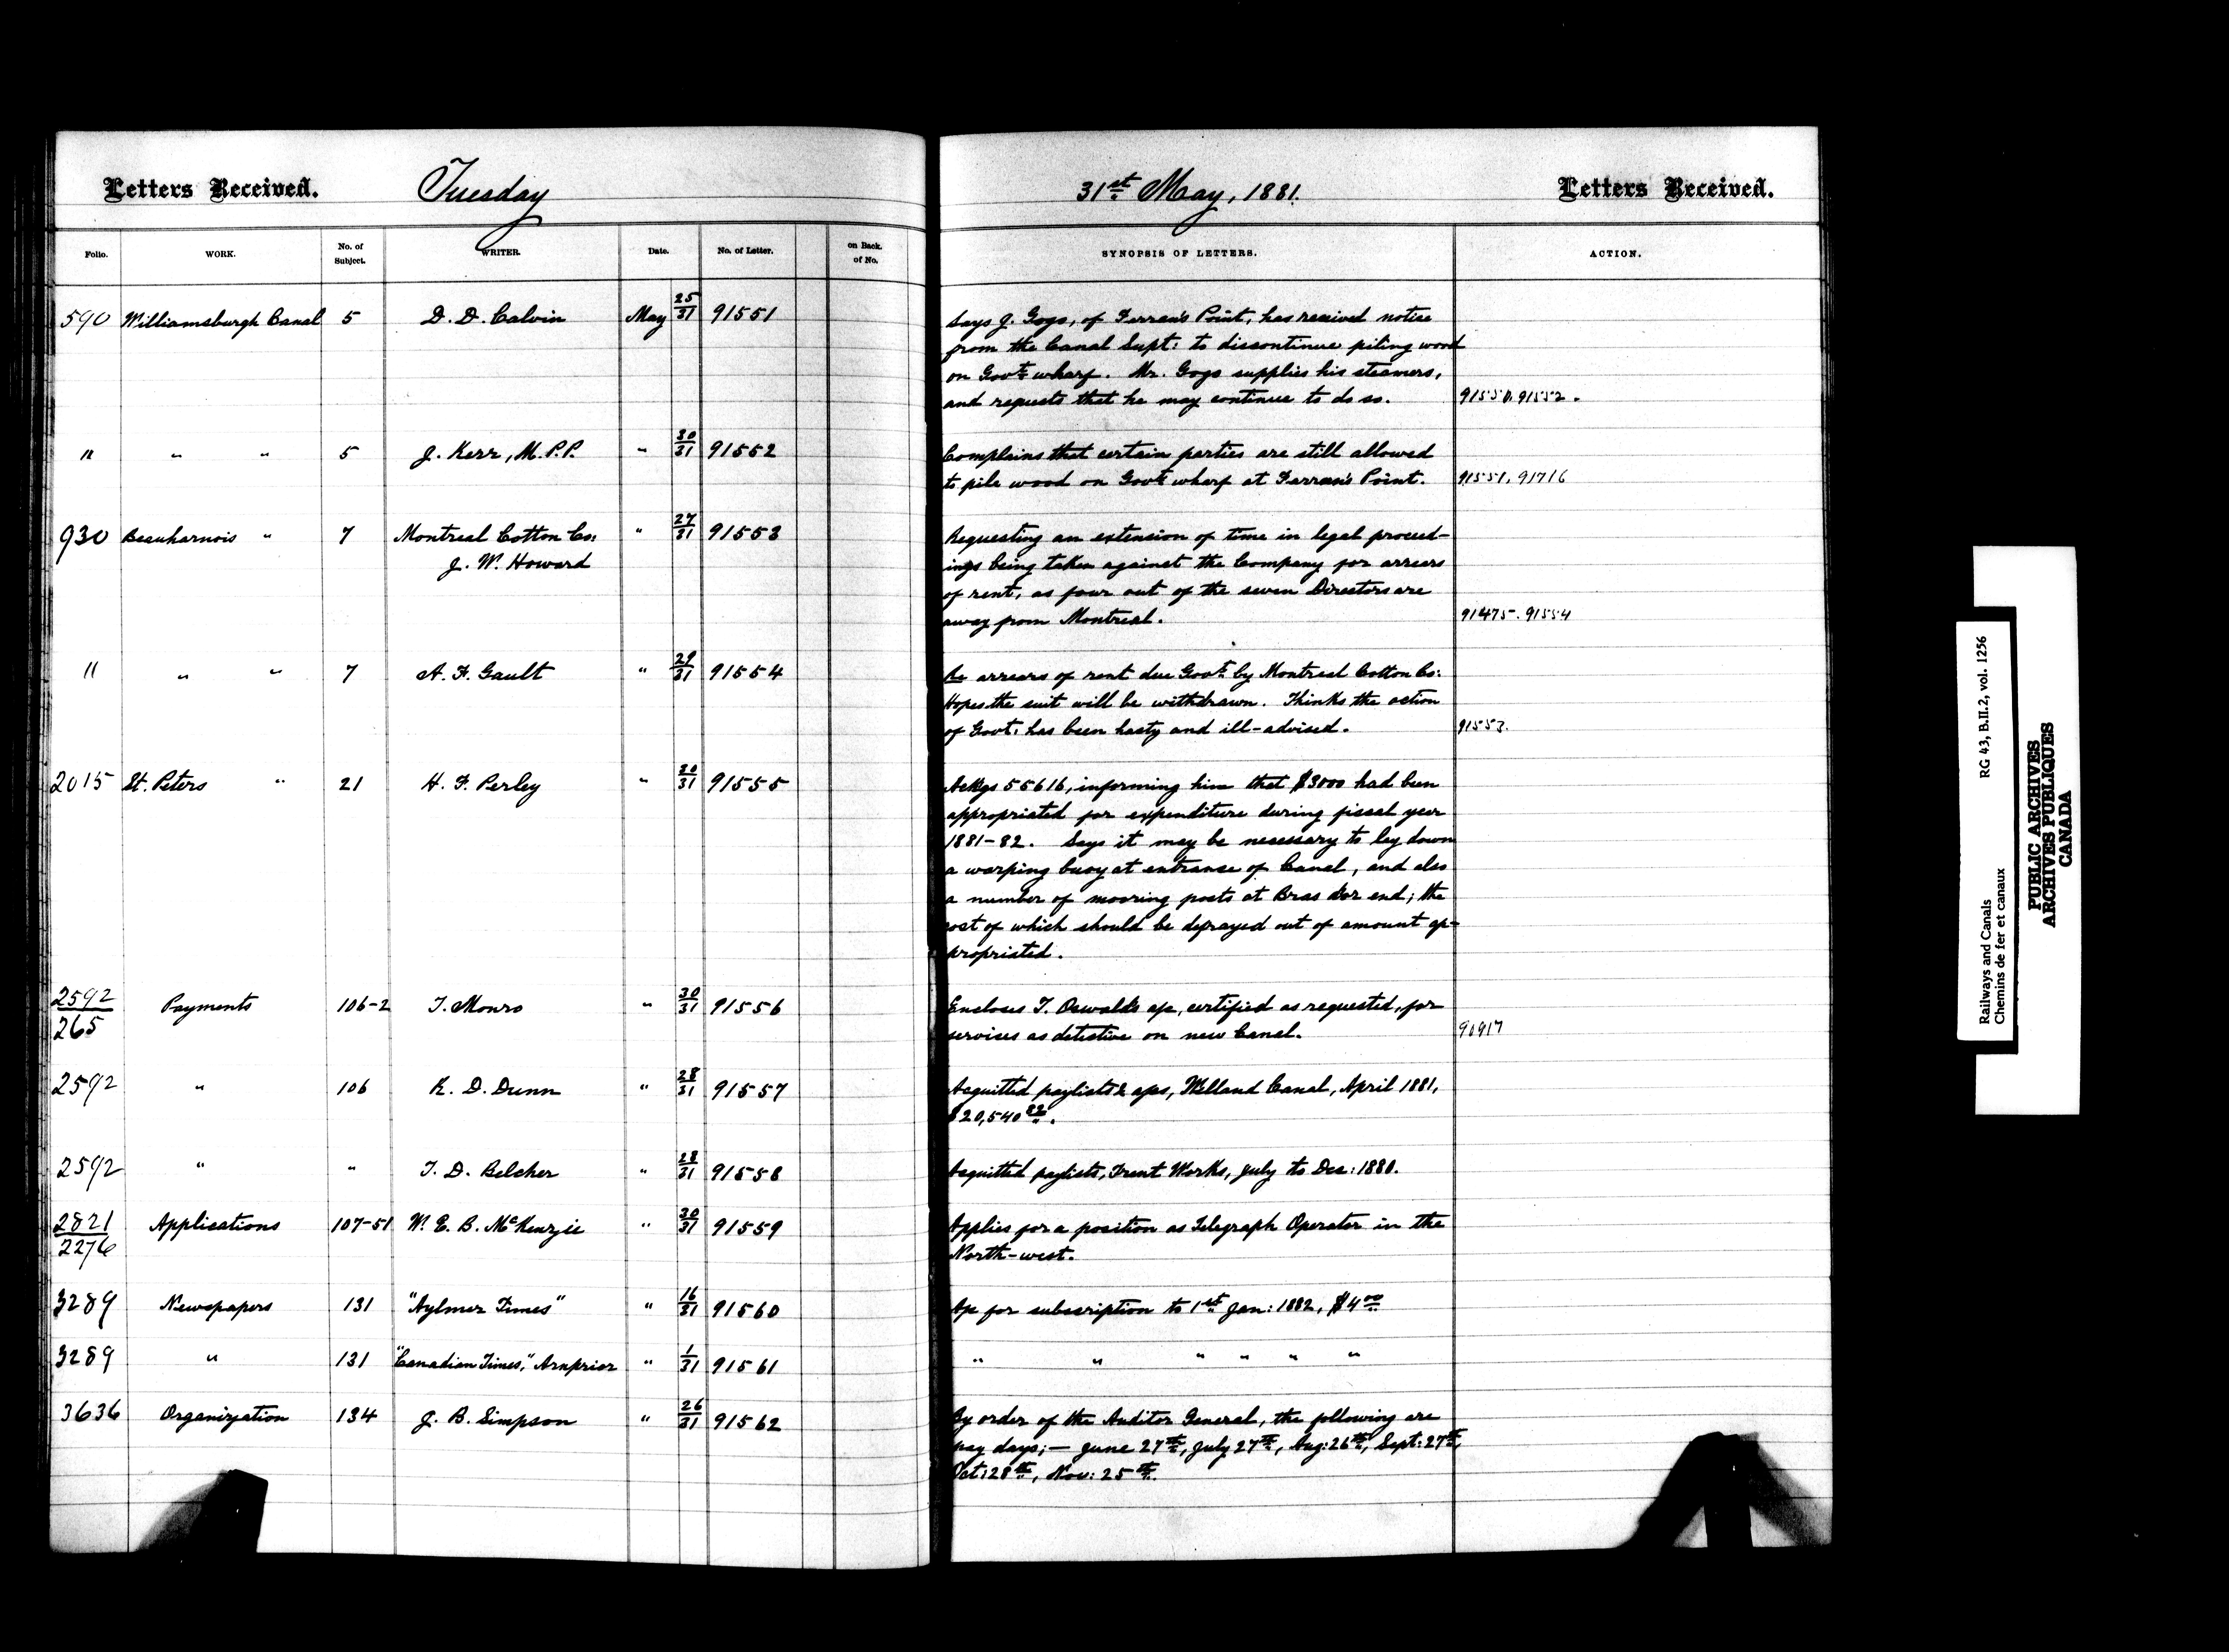 Letters Received. Tuesday 31st May, 1881. Letters Received.
Folio. WORK. No. of Subject. WRITER. Date. No. of Letter. on Back of No. SYNOPSIS OF LETTERS. ACTION.
590 Williamsburgh Canal 5 D. D. Calvin May 25/31 91551 Says J. Gogo, of Farran's Point, has received notice
from the Canal Supt: to discontinue piling wood
on Govt wharf. Mr. Gogo supplies his steamers,
and requests that he may continue to do so. 91550. 91552.
" " " 5 J. Kerr, M.P.P. " 30/31 91552 Complains that certain parties are still allowed
to pile wood on Govt wharf at Farran's Point. 91551. 91716
930 Beauharnois " 7 Montreal Cotton Co: " 27/31 91553 Requesting an extension of time in legal proceed-
J. W. Howard ings being taken against the Company for arrears
of rent, as four out of the seven Directors are
away from Montreal. 91475. 91554
" " " 7 A. F. Gault " 29/31 91554 Re arrears of rent due Govt by Montreal Cotton Co:
Hopes the suit will be withdrawn. Thinks the action
of Govt: has been hasty and ill-advised. 91553.
2015 St. Peters " 21 H. F. Perley " 30/31 91555 Ackgs 55616, informing him that $3000 had been
appropriated for expenditure during fiscal year
1881-82. Says it may be necessary to lay down
a warping buoy at entrance of Canal, and also
a number of mooring posts at Bras d'or end; the
cost of which should be defrayed out of amount ap-
propriated.
2592/265 Payments 106-2 T. Monro " 30/31 91556 Encloses T. Oswald's a/c, certified as requested, for
services as detective on new Canal. 90917
2592 " 106 R. D. Dunn " 28/31 91557 Acquitted paylists & a/cs, Welland Canal, April 1881,
$20,540 82.
2592 " " T. D. Belcher " 28/31 91558 Acquitted paylists, Trent Works, July to Dec: 1880.
2821/2276 Applications 107-51 W. E. B. McKenzie " 30/31 91559 Applies for a position as Telegraph Operator in the
North-west.
3289 Newspapers 131 "Aylmer Times" " 16/31 91560 A/c for subscription to 1st Jan: 1882, $4 00
3289 " 131 "Canadian Times," Arnprior " 1/31 91561 " " " " " "
3636 Organization 134 J. B. Simpson " 26/31 91562 By order of the Auditor General, the following are
pay days; — June 27th, July 27th, Aug: 26th, Sept: 27th,
Oct: 28th, Nov: 25th.
Railways and Canals RG 43, B.II.2, vol. 1256
Chemins de fer et canaux
PUBLIC ARCHIVES
ARCHIVES PUBLIQUES
CANADA